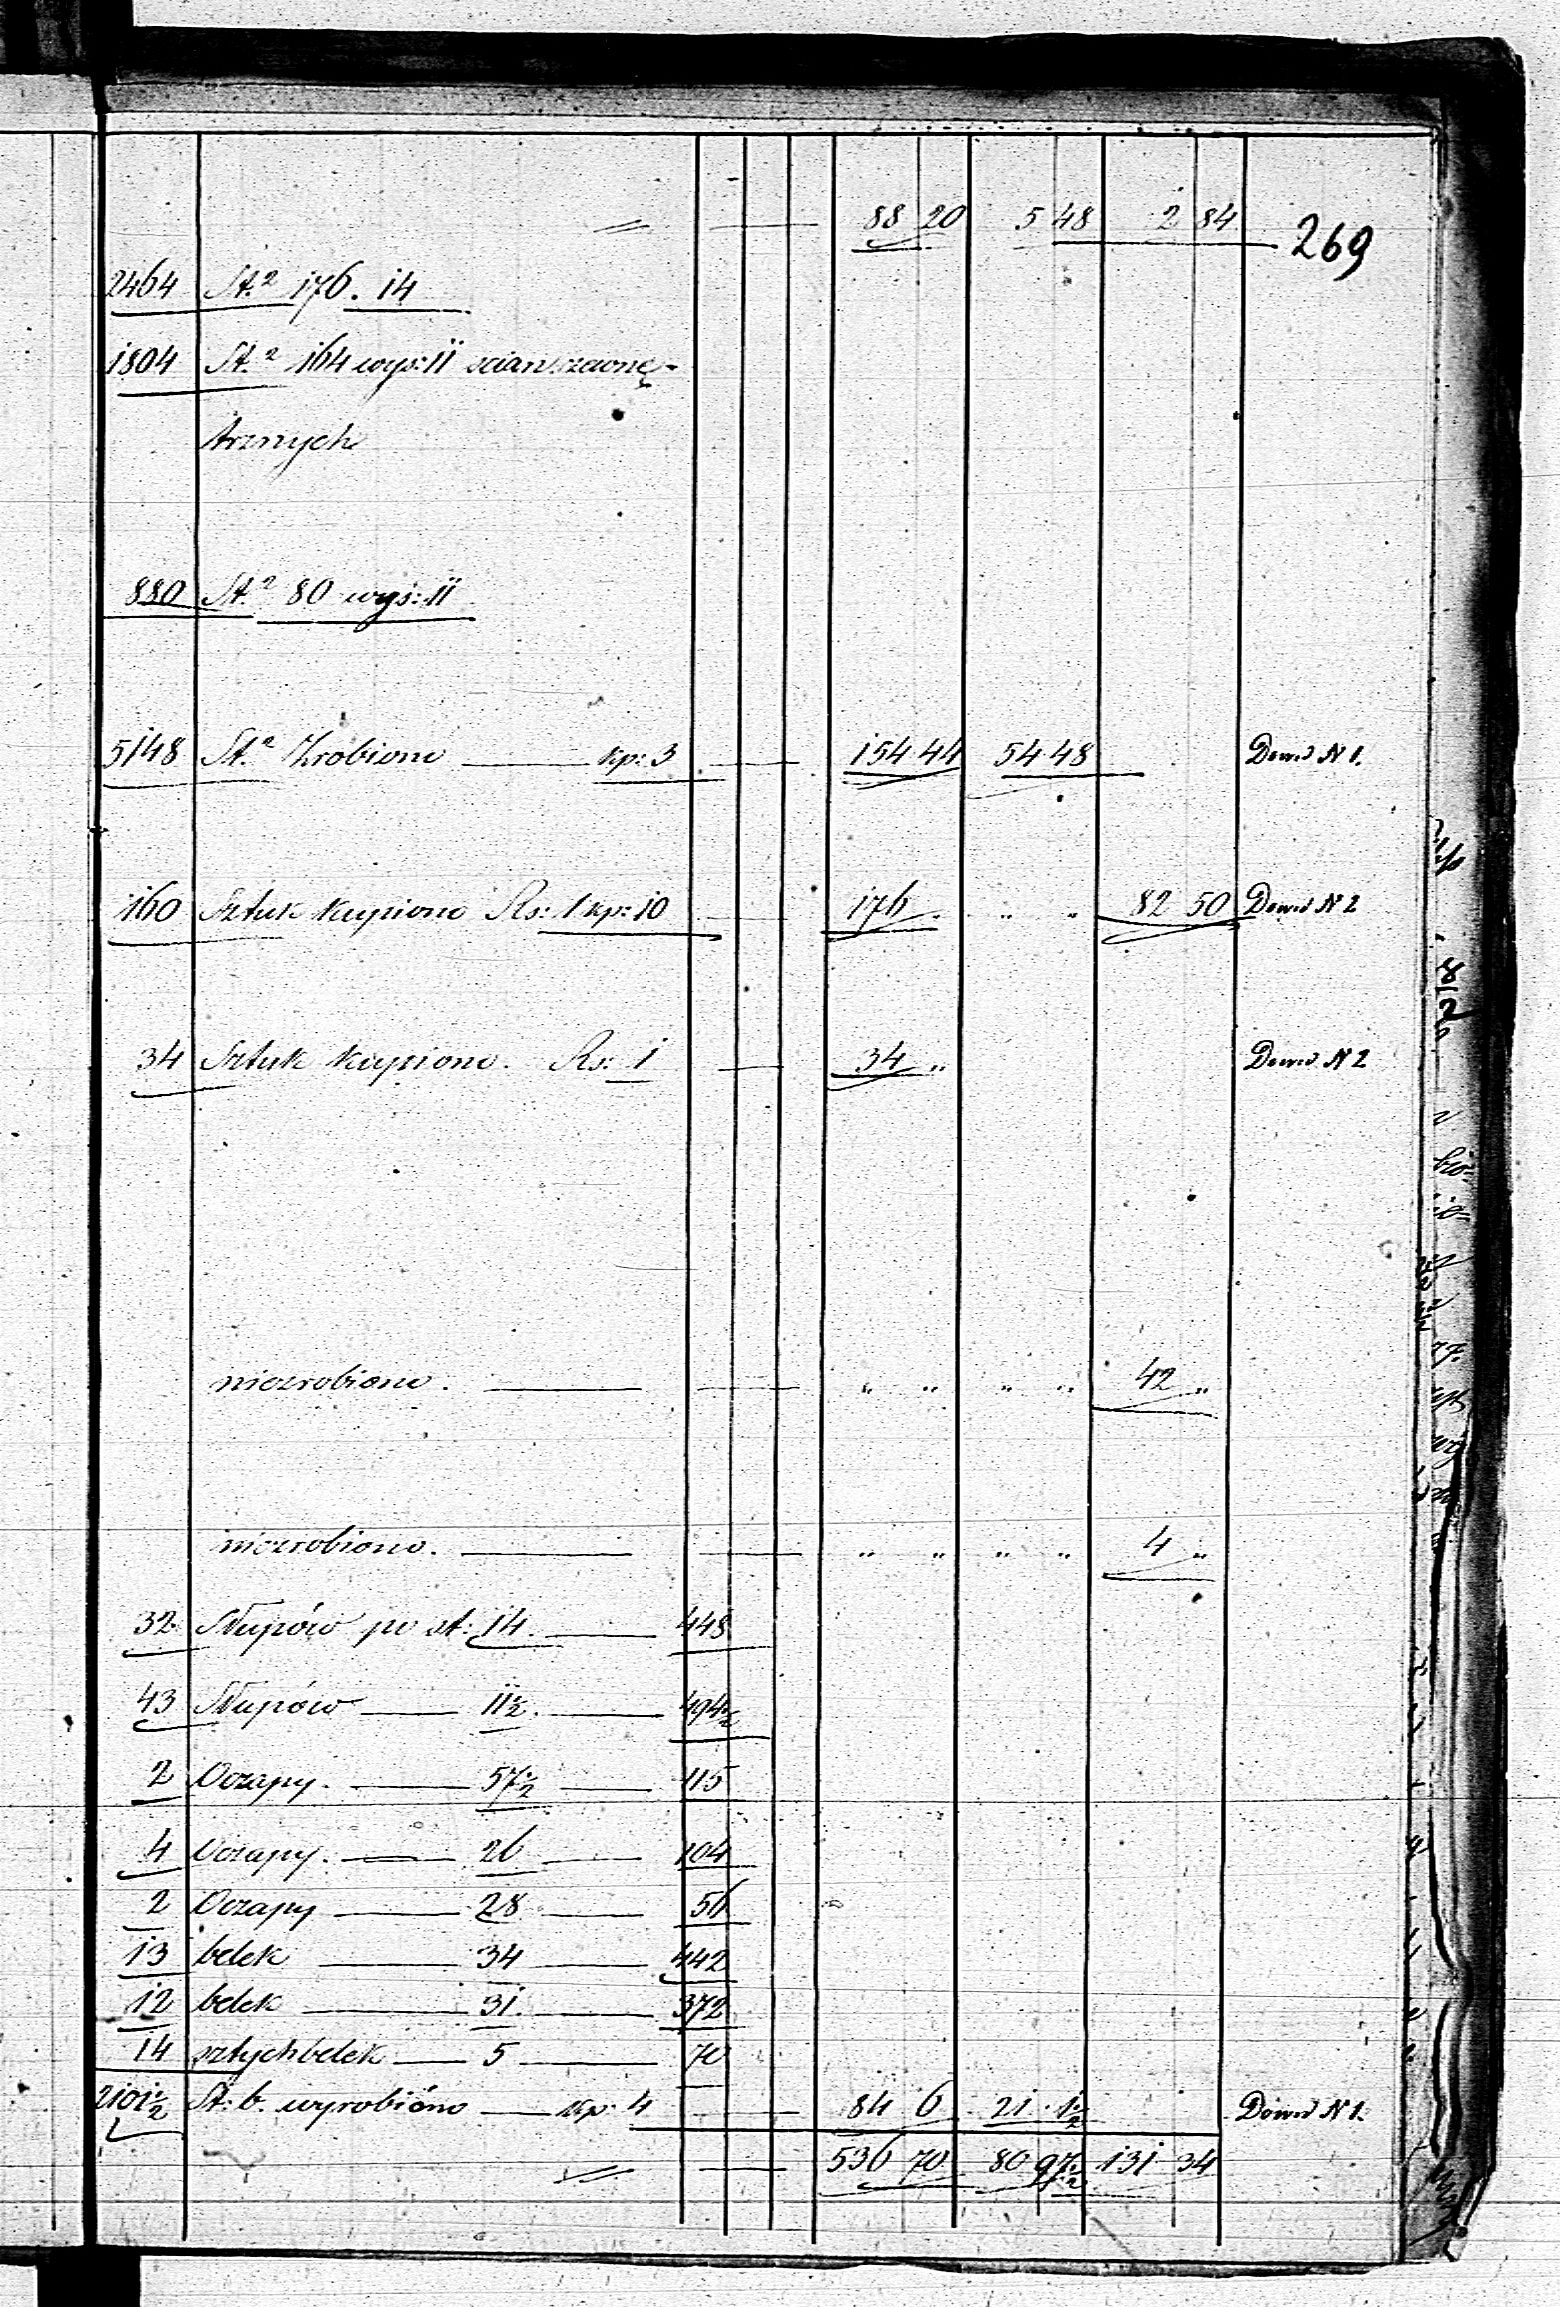 88 20 5 48 2 84 269
2464 St.² 176. 14
1804 St.² 164 wys: 11 ścian zewnę-
trznych
880 St.² 80 wys: 11
5148 St.² Zrobiono kp: 3 154 44 54 48 Dowód N 1.
160 Sztuk kupiono Rs: 1 kp: 10 176 . „ „ 82 50 Dowód N 2
34 Sztuk kupiono. Rs: 1 34 „ Dowód N 2
niezrobiono. „ „ „ „ 42 „
niezrobiono. „ „ „ „ 4 „
32 Słupów po st: 14. 448
43 Słupów 11½. 494½
2 Oczapy. 57½ 115
4 Oczapy. 26 104
2 Oczapy 28 56
13 belek 34 442
12 belek 31. 372
14 sztychbelek 5 70
2101½ St: b. wyrobióno kp: 4 84 6 21 . 1½ Dowód N 1.
536 70 80 97½ 131 34